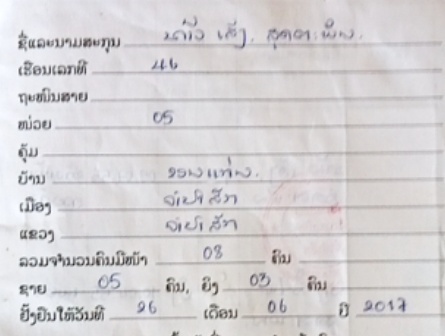 ຊື່ແລະນາມສະກຸນ
ເຮືອນເລກທີ 46
ຖະໜົນສາຍ
ໜ່ວຍ 05
ຄຸ້ມ
ບ້ານ
ເມືອງ ຈຳປາສັກ
ແຂວງ ຈຳປາສັກ
ລວມຈຳນວນຄົນມີໜ້າ 08 ຄົນ
ຊາຍ 05 ຄົນ, ຍິງ 03 ຄົນ
ຢັ້ງຢືນໃຫ້ວັນທີ 26 ເດືອນ 06 ປີ 2017